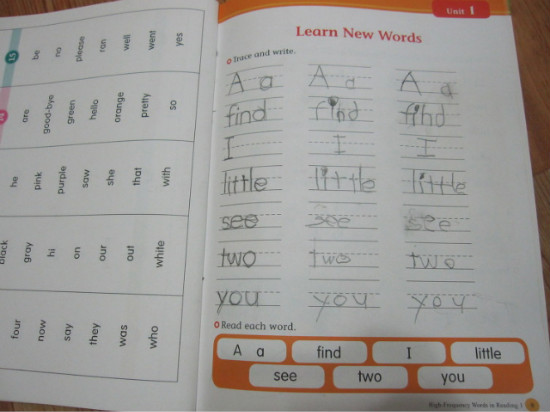 15
be
no
please
ran
well
went
yes
are
good-bye
green
hello
orange
pretty
so
he
pink
purple
saw
she
that
with
black
gray
hi
on
our
out
white
four
now
say
they
was
who
Unit 1
Learn New Words
Trace and write.
A a A a A a
find find find
I I I
little little little
see see see
two two two
you you you
Read each word.
A a find I little
see two you
High-Frequency Words in Reading 1